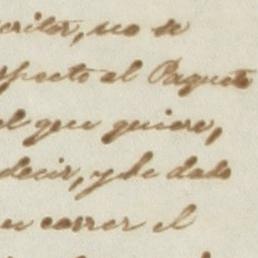 critor, no se
specto al Paquete
el que quiere,
decir, y he dado
en correr el